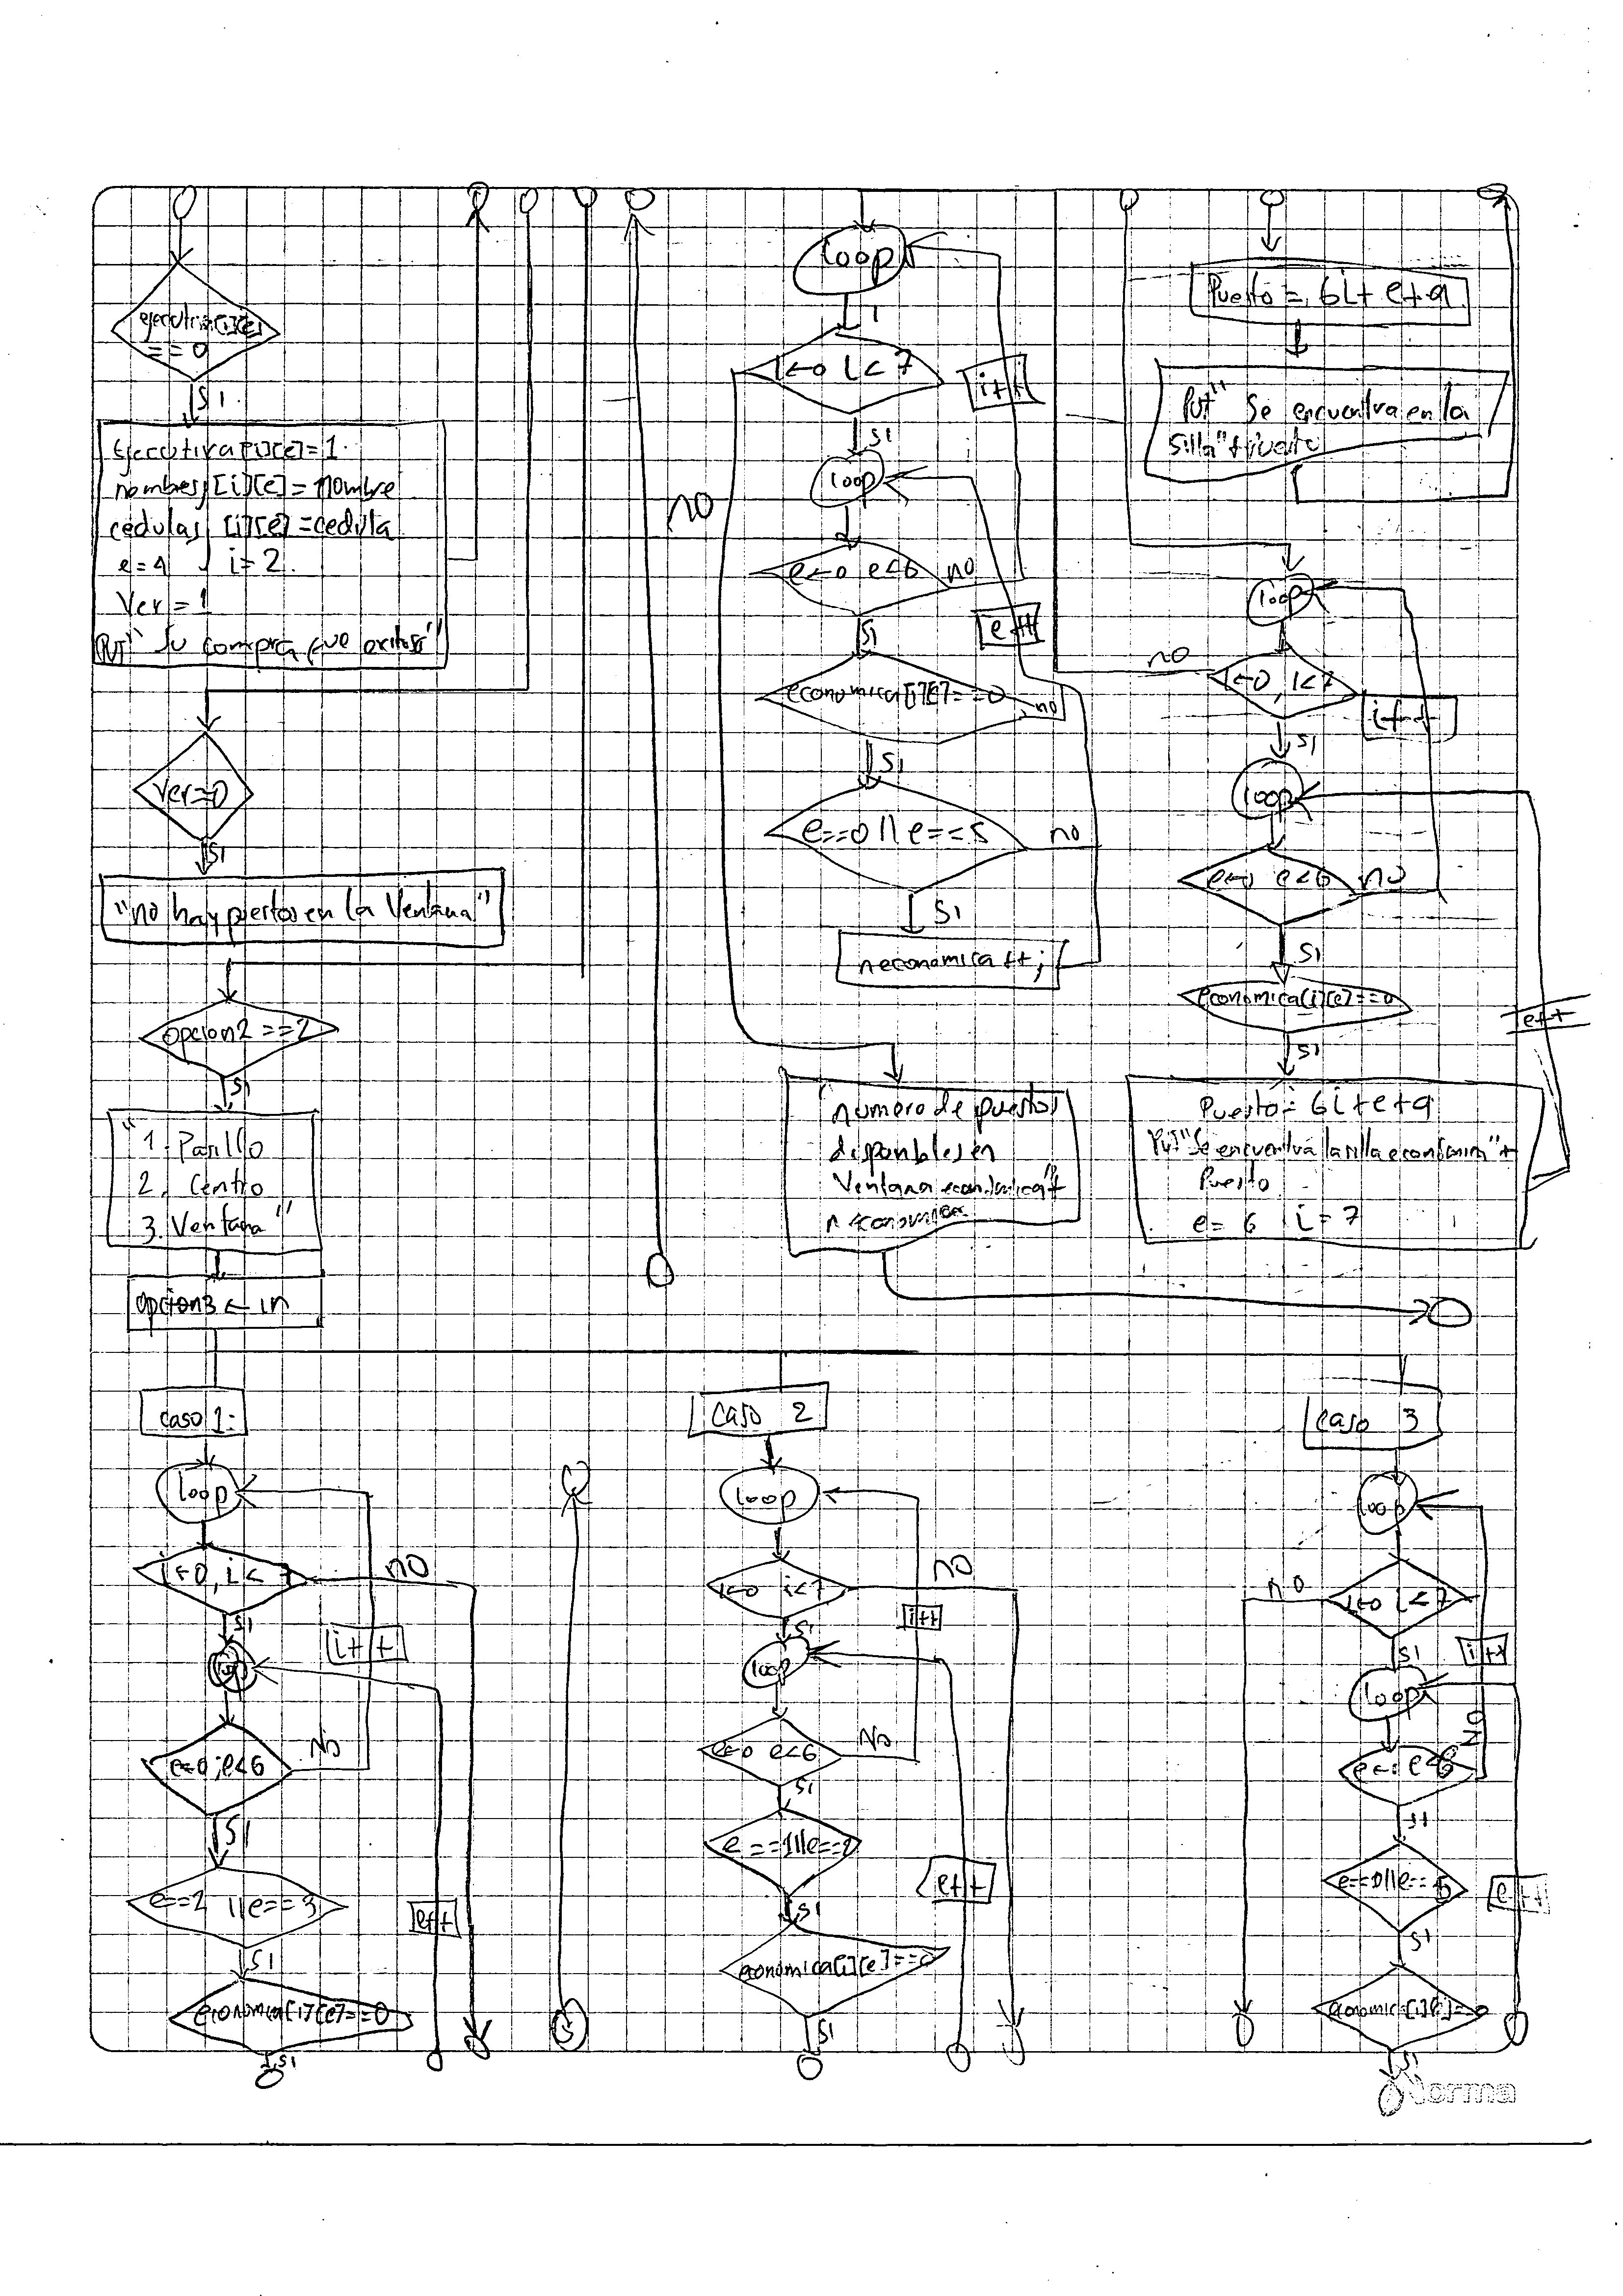 ejecutiva[i][e]
== 0
si
Ejecutiva[i][e]=1
nombres[i][e]=nombre
cedulas [i][e]=cedula
e=4 i=2
Ver=1
Put" Su compra fue exitosa"
Ver==0
si
"no hay puertos en la Ventana"
opcion2 ==2
si
"1. Pasillo
2. Centro
3. Ventana"
opcion3 ← in
loop
i←0 i<7
i++
si
no
loop
e←0 e<6
no
e++
si
economica[i][e]==0
no
si
e==0 || e==5
no
si
neconomica ++;
"numero de puestos
disponibles en
Ventana economica"+
neconomica
Puesto = 6i+ e+9
Put" Se encuentra en la
silla"+puesto
loop
no
i←0, i<7
i++
si
loop
e←0 e<6
no
si
economica[i][e]==0
e++
si
Puesto= 6i+e+9
Put"Se encuentra la silla economica"+
Puesto
e= 6 i=7
caso 1:
loop
i←0, i<7
no
si
i++
loop
e←0;e<6
No
si
e==2 ||e==3
e++
si
economica[i][e]==0
si
5
caso 2
loop
i←0 i<7
no
i++
si
loop
e←0 e<6
No
si
e ==1||e==
e++
si
economica[i][e]==0
si
caso 3
loop
no
i←0 i<7
si
i++
loop
NO
e← e<6
si
e==0||e==5
e++
si
economica[i][e]==0
si
Norma